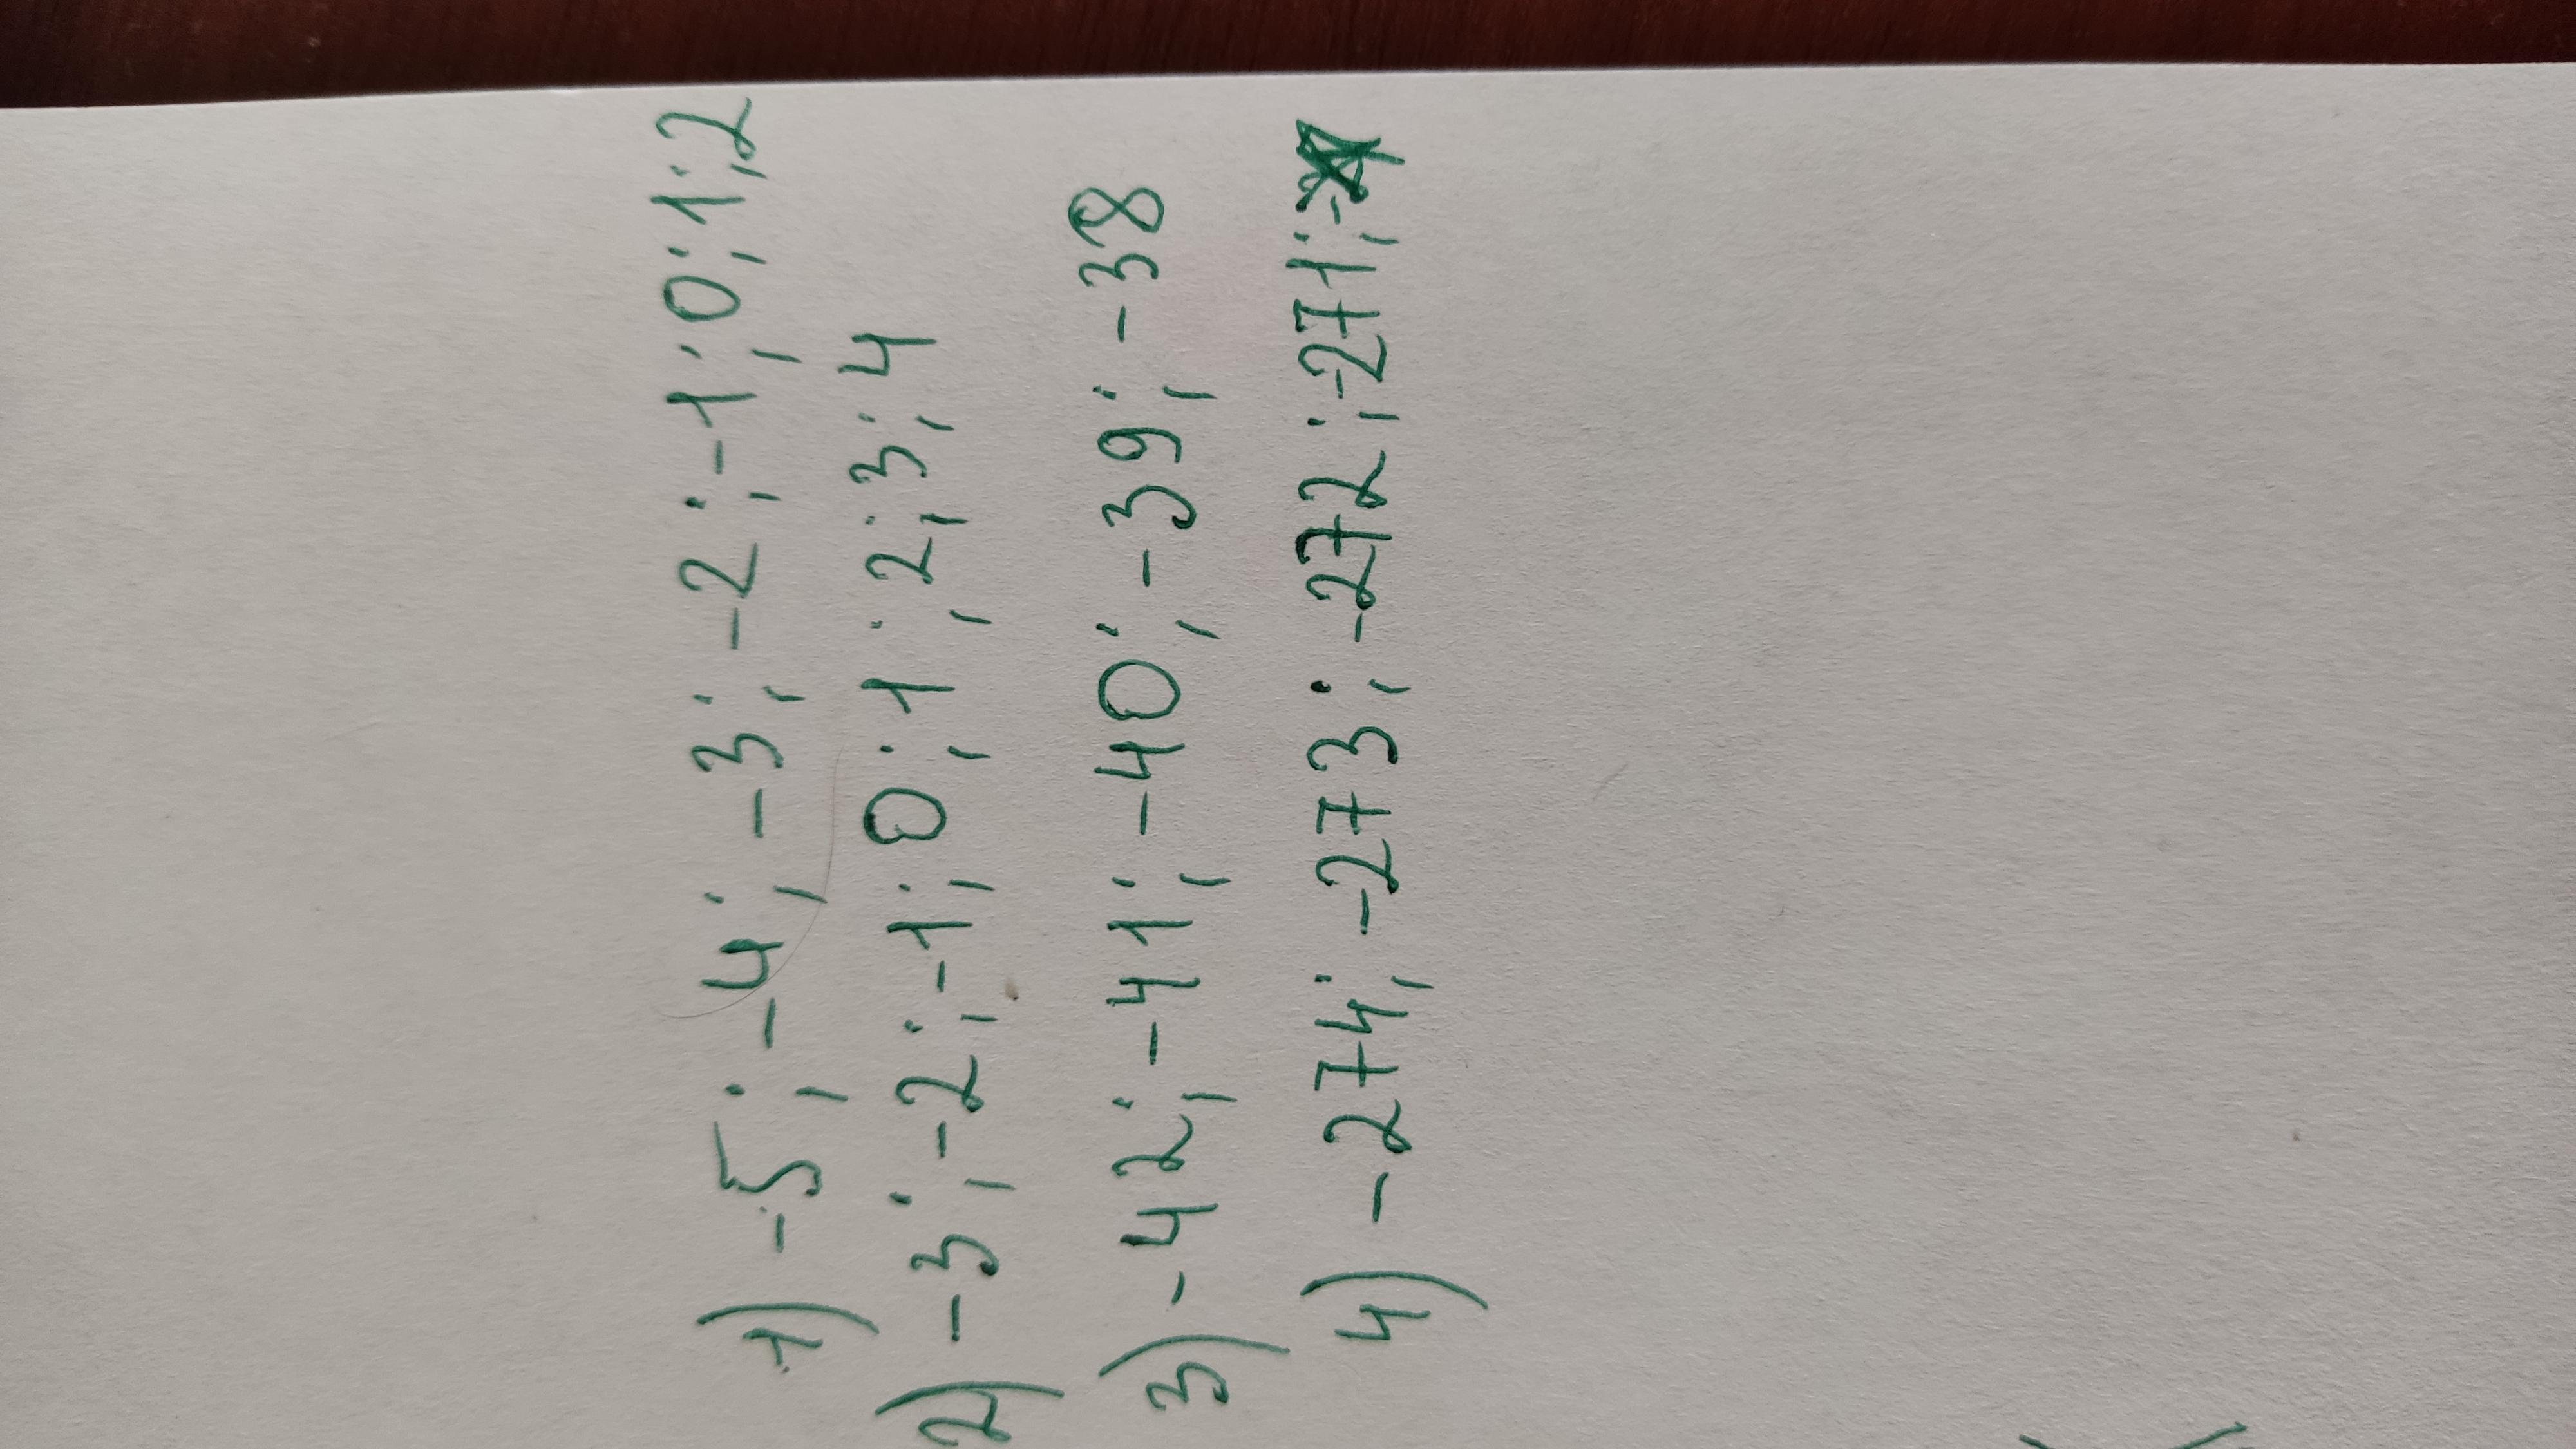 1) -5; -4; -3; -2; -1; 0; 1; 2
2) -3; -2; -1; 0; 1; 2; 3; 4
3) -42; -41; -40; -39; -38
4) -274; -273; -272; -271;